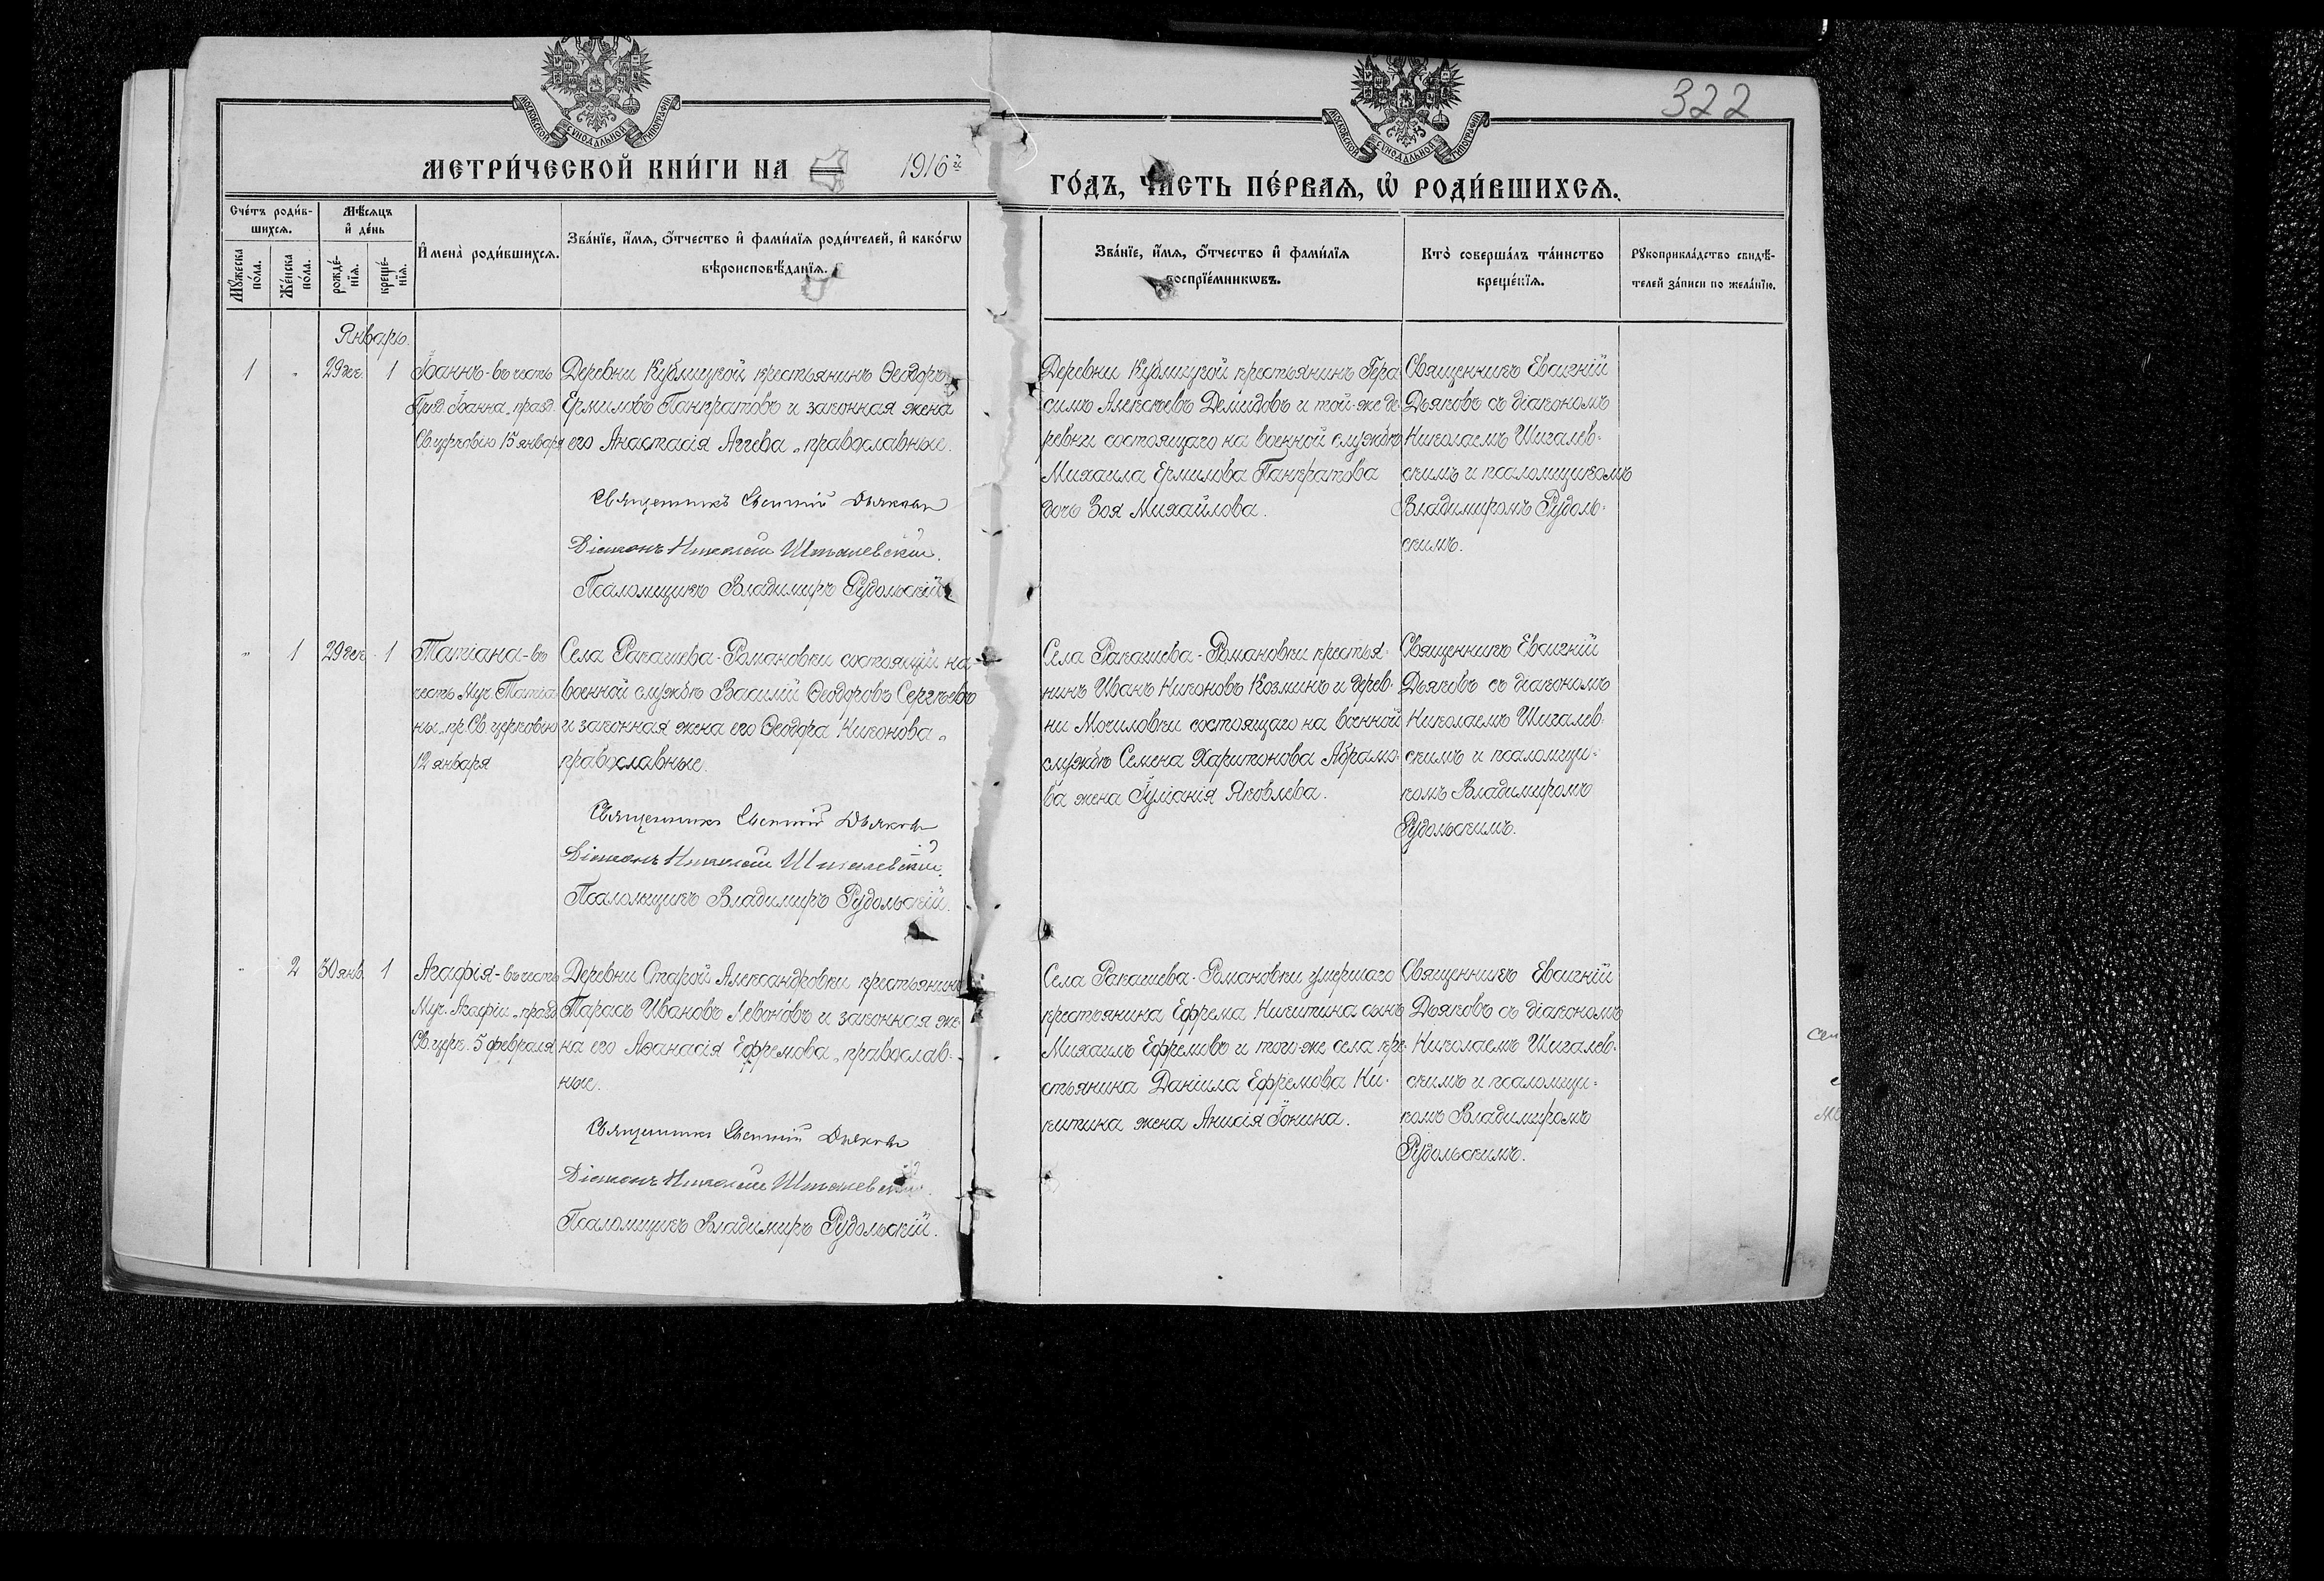 322
МОСКОВСКОЙ СУНОДАЛЬНОЙ ТИПОГРАФІИ
МОСКОВСКОЙ СУНОДАЛЬНОЙ ТИПОГРАФІИ
МЕТРИ́ЧЕСКОЙ КНИ́ГИ НА 1916й
ГО́ДЪ, ЧАСТЬ ПЕ́РВАѦ, Ѡ҆ РОДИ́ВШИХСѦ.
Сче́тъ роди́в-
шихсѧ.
Мꙋ́жеска по́ла.
Же́нска по́ла.
Мѣ́сѧцъ
и҆ де́нь
рожде́-
нїѧ.
креще́-
нїѧ.
И҆мена̀ роди́вшихсѧ.
Зва́нїе, и҆́мѧ, ѻ҆́тчество и҆ фами́лїѧ роди́телей, и҆ како́гѡ
вѣроисповѣ́данїѧ.
Зва́нїе, и҆́мѧ, ѻ҆́тчество и҆ фами́лїѧ
воспрїе́мникѡвъ.
Кто̀ соверша́лъ та́инство
креще́нїѧ.
Рꙋкоприкла́дство свидѣ́-
телей за́писи по жела́нїю.
Январь.
1 " 29 дек. 1
Іоаннъ - въ честь
Пред. Іоанна, празд.
Св. церковію 15 января
Деревни Кублицкой крестьянинъ Ѳеодоръ
Ермиловъ Панкратовъ и законная жена
его Анастасія Аггева, православные.
Священникъ Евсигній Дьяковъ
Діаконъ Николай Шигалевскій.
Псаломщикъ Владимиръ Рудольскій
Деревни Кублицкой крестьянинъ Гера
симъ Алексѣевъ Демидовъ и той-же де-
ревни состоящаго на военной службѣ
Михаила Ермилова Панкратова
дочь Зоя Михайлова.
Священникъ Евсигній
Дьяковъ съ діакономъ
Николаемъ Шигалев-
скимъ и псаломщикомъ
Владимиромъ Рудоль-
скимъ.
" 1 29 дек. 1
Татіана - въ
честь Муч. Татіа
ны, пр. Св. церковію
12 января
Села Ракашева-Романовки состоящій на
военной службѣ Василій Ѳеодоровъ Сергѣевъ
и законная жена его Ѳеодора Никонова,
православные.
Священникъ Евсигній Дьяковъ
Діаконъ Николай Шигалевскій.
Псаломщикъ Владимиръ Рудольскій.
Села Ракашева-Романовки крестья-
нинъ Иванъ Никоновъ Козминъ и дерев-
ни Мочиловки состоящаго на военной
службѣ Семена Харитонова Абрамо-
ва жена Іуліанія Яковлева.
Священникъ Евсигній
Дьяковъ съ діакономъ
Николаемъ Шигалев-
скимъ и псаломщи-
комъ Владимиромъ
Рудольскимъ.
" 2 30 янв. 1
Агафія - въ честь
Муч. Агафіи, празд.
Св. церк. 5 февраля
Деревни Старой Александровки крестьянинъ
Тарасъ Ивановъ Левоновъ и законная же-
на его Аѳанасія Ефремова, православ-
ные.
Священникъ Евсигній Дьяковъ
Діаконъ Николай Шигалевскій.
Псаломщикъ Владимиръ Рудольскій.
Села Ракашева-Романовки умершаго
крестьянина Ефрема Никитина сынъ
Михаилъ Ефремовъ и того-же села кре-
стьянина Даніила Ефремова Ни-
китина жена Анисія Іонина.
Священникъ Евсигній
Дьяковъ съ діакономъ
Николаемъ Шигалев-
скимъ и псаломщи-
комъ Владимиромъ
Рудольскимъ.